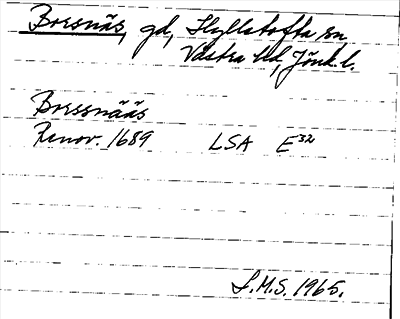 Borsnäs, gd, Hylletofta sn
Västra hd, Jönk. l.
Borssnääs
Renov. 1689 LSA E³²
S.M.S. 1965.